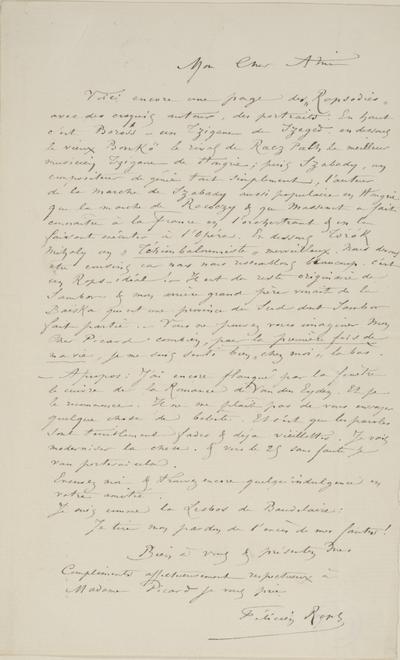 Mon Cher Ami
Voici encore une page des „Rapsodies„
avec des croquis autour, des portraits. En haut
c'est Boross – un Tzigane de Szeged, en dessous
le vieux Bonkó le rival de Racz Pal, le meilleur
musicien Tzigane de Hongrie; puis Szabady, un
compositeur de génie tout simplement, l'auteur
de la marche de Szabady aussi populaire en Hongrie
que la marche de Racoczy & que Massenet a fait
connaitre à la France en l'orchestrant & en la
faisant exécuter à l'Opéra. En dessous Török
Mihaly un „ merveilleux. Nous
cousins car nous nous ressemblons beaucoup. c'est
un Rops – . – Il est du reste originaire de
Sambor & mon arrière grand père venait de la
Bacska qui est une province du Sud dont Sambor
fait partie. – Vous ne pouvez vous imaginer Mon
Cher Picard combien, par la première fois de
ma vie, je me suis senti bien, chez moi, là bas.
– Apropos: J'ai encore flanqué par la fenêtre
le cuivre de la Romance de Van der Eyden. Et je
le recommence. Il ne me plait pas de vous envoyer
quelque chose de bébête. Et c'est que les paroles
sont terriblement fades & déja vieillottes. Je vais
moderniser la chose. & vers le 25 sans faute,
vous
Excusez moi & trouvez encore quelque indulgence en
votre amitié.
Je suis comme la Lesbos de Baudelaire:
Je tire mon pardon de l'excès de mes fautes!
Bien à vous & présentez mes
Compliments affectueusement respectueux à
Madame Picard je vous prie
Félicien Rops